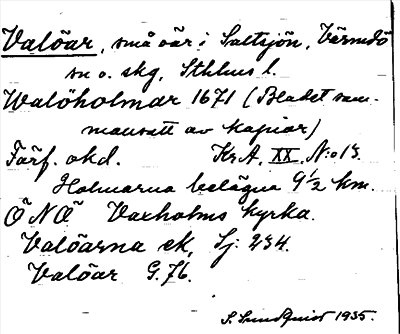 Valöar, små öar i Saltsjön, Värmdö
sn o. skg, Sthlms l.
Walöholmar 1671 (Bladet sam-
mansatt av kopior)
Förf. okd. KrA, XX, N:o 13.
Holmarna belägna 9½ km.
ÖNÖ Vaxholms kyrka.
Valöarna ek, Sj: 234.
Valöar G.76.
S. Sundquist 1935.